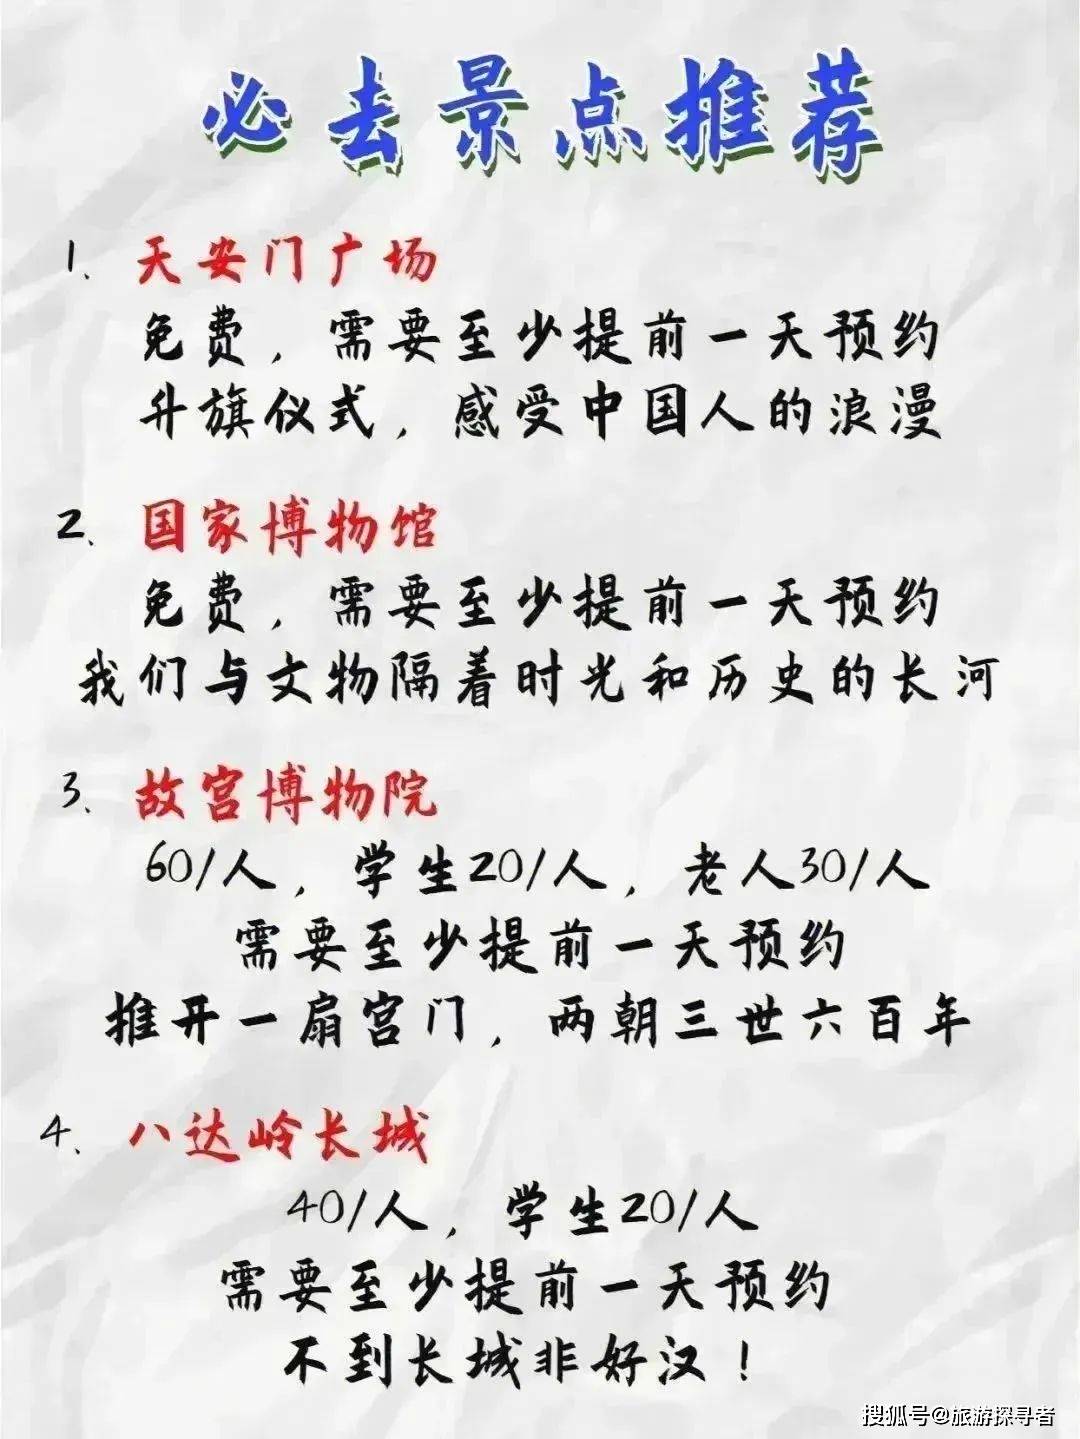 必去景点推荐
1、天安门广场
免费，需要至少提前一天预约
升旗仪式，感受中国人的浪漫
2、国家博物馆
免费，需要至少提前一天预约
我们与文物隔着时光和历史的长河
3、故宫博物院
60/人，学生20/人，老人30/人
需要至少提前一天预约
推开一扇宫门，两朝三世六百年
4、八达岭长城
40/人，学生20/人
需要至少提前一天预约
不到长城非好汉！
搜狐号@旅游探寻者